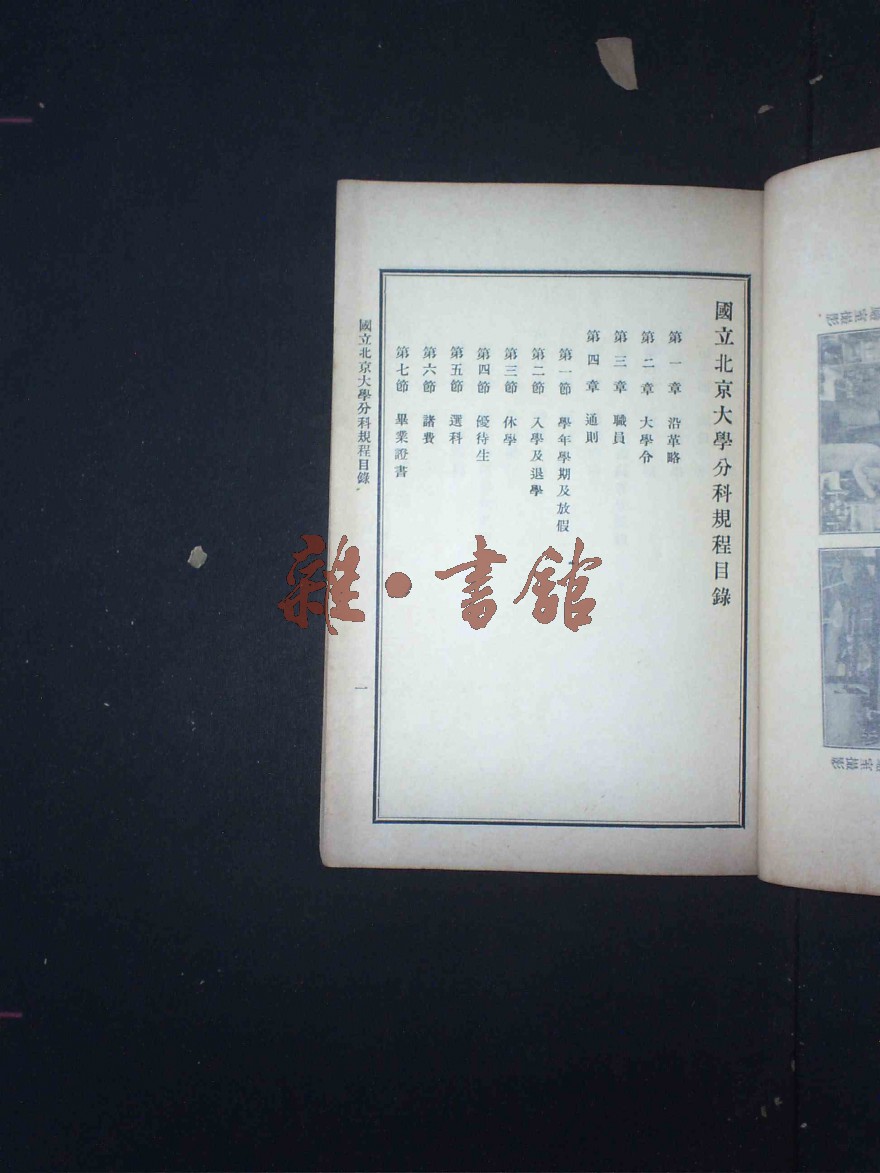 國立北京大學分科規程目錄
第一章 沿革略
第二章 大學令
第三章 職員
第四章 通則
第一節 學年學期及放假
第二節 入學及退學
第三節 休學
第四節 優待生
第五節 選科
第六節 諸費
第七節 畢業證書
國立北京大學分科規程目錄
一
雜·書館
室攝影
室攝影